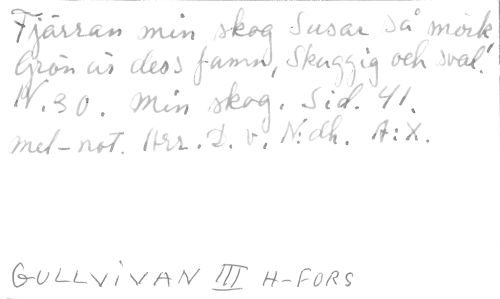 Fjärran min skog susar så mörk
Grön är dess famn, skuggig och sval.
N.30. Min skog. Sid. 41.
mel-not. Arr. D. v. N:dh. A:X.
GULLVIVAN III H-FORS